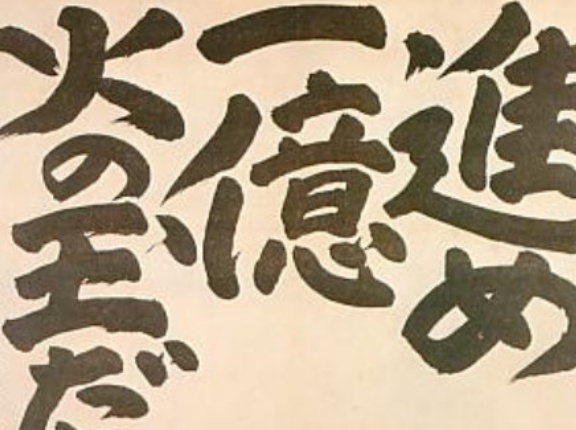 進め
一億
火の玉だ